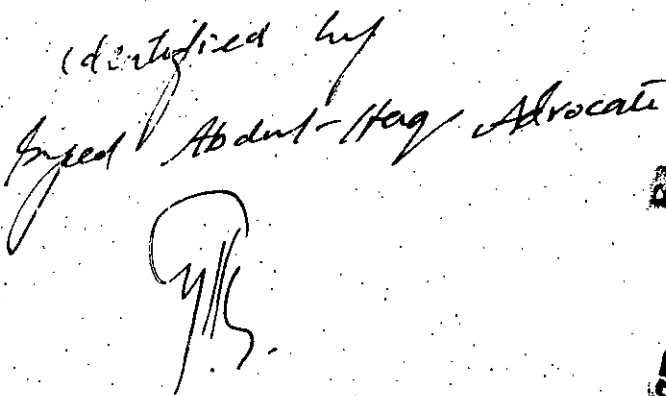 identified by
Syed Abdul-Haq Advocate